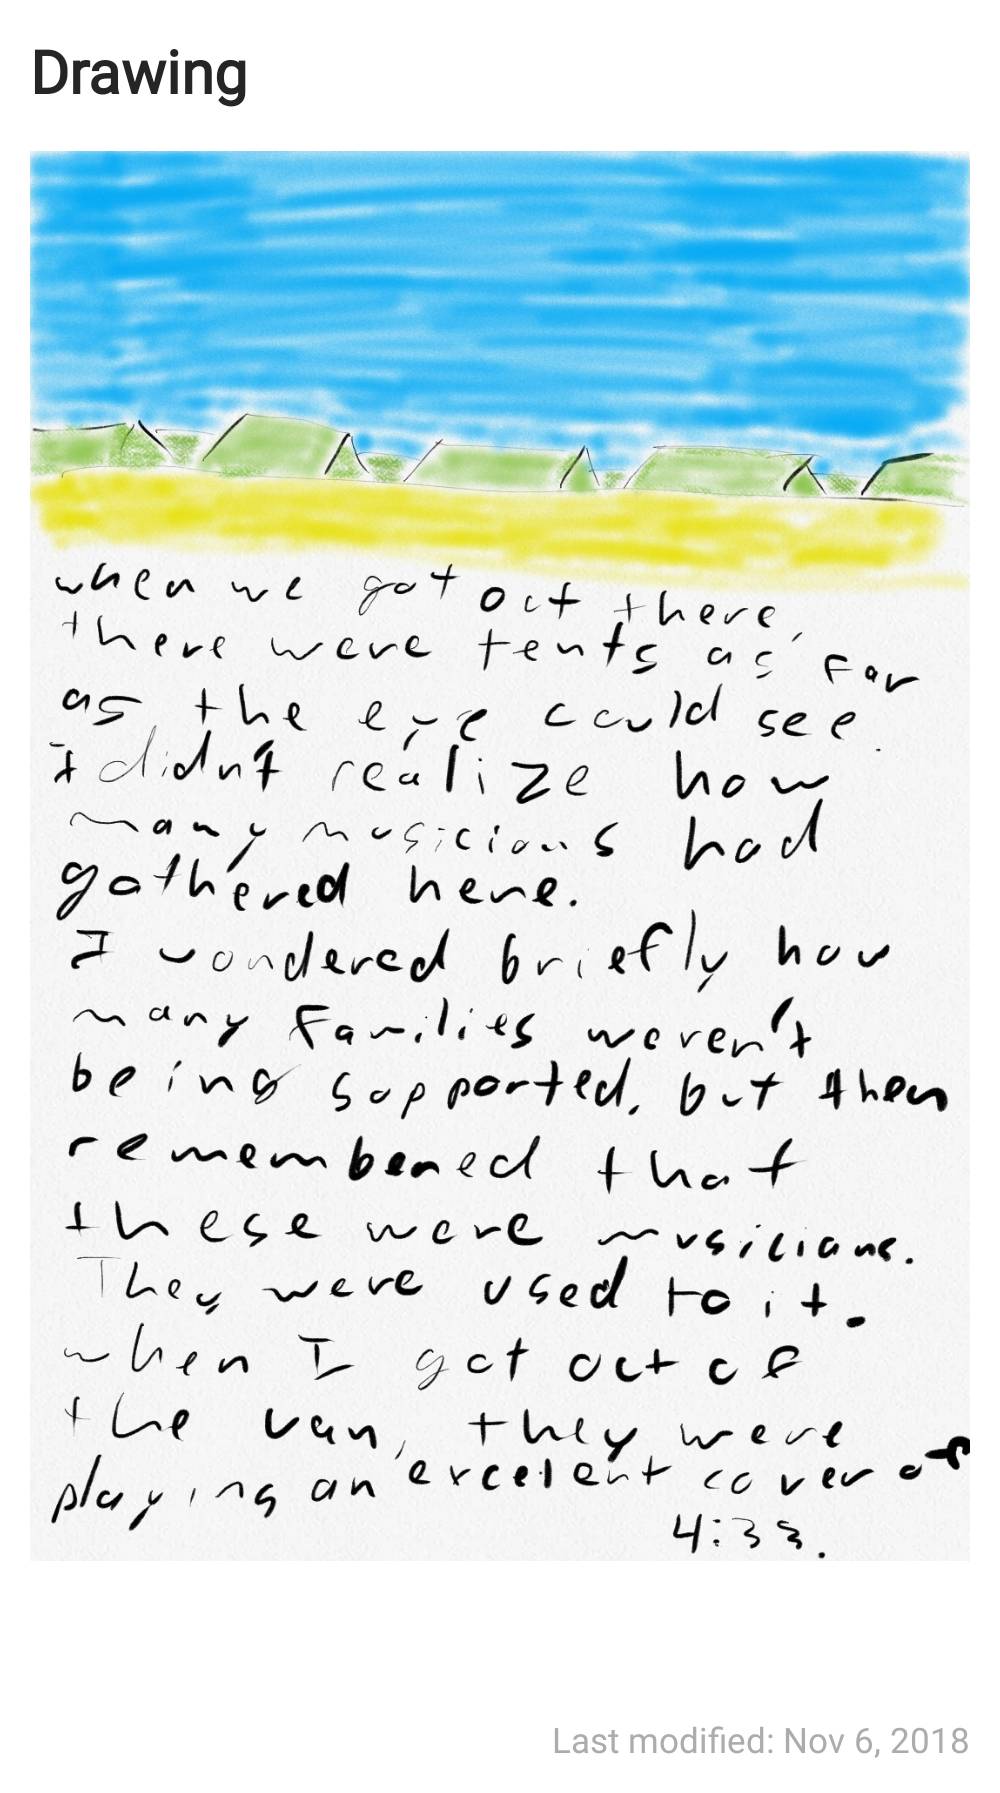 Drawing
when we got out there,
there were tents as far
as the eye could see.
I didn't realize how
many musicians had
gathered here.
I wondered briefly how
many families weren't
being supported, but then
remembered that
these were musicians.
They were used to it.
when I got out of
the van, they were
playing an excelent cover of
4:33.
Last modified: Nov 6, 2018